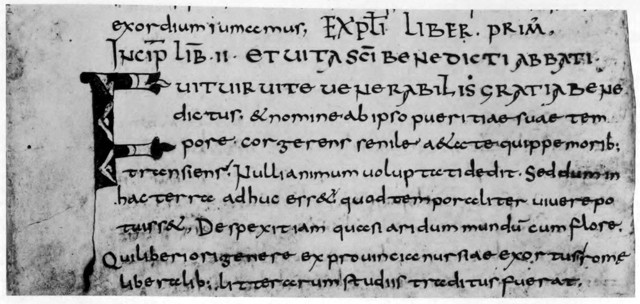 exordium sumamus; EXPLT LIBER. PRIM.
INCIP LIB. II. ET UITA SCI BENEDICTI ABBATI.
FUIT UIR UITE UENERABILIS GRATIA BENE
dictus. & nomine ab ipso pueritiae suae tem
pore. cor gerens senile a&ate quippe morib;
transiens. Nulli animum uoluptati dedit. Sed dum in
hac terra adhuc ess& quod temporaliter uiuere po
tuiss&, Despexit iam quasi aridum mundū cum flore.
Qui liberiori genere ex prouincia nursiae exortus, rome
liberalib; litterarum studiis traditus fuerat.